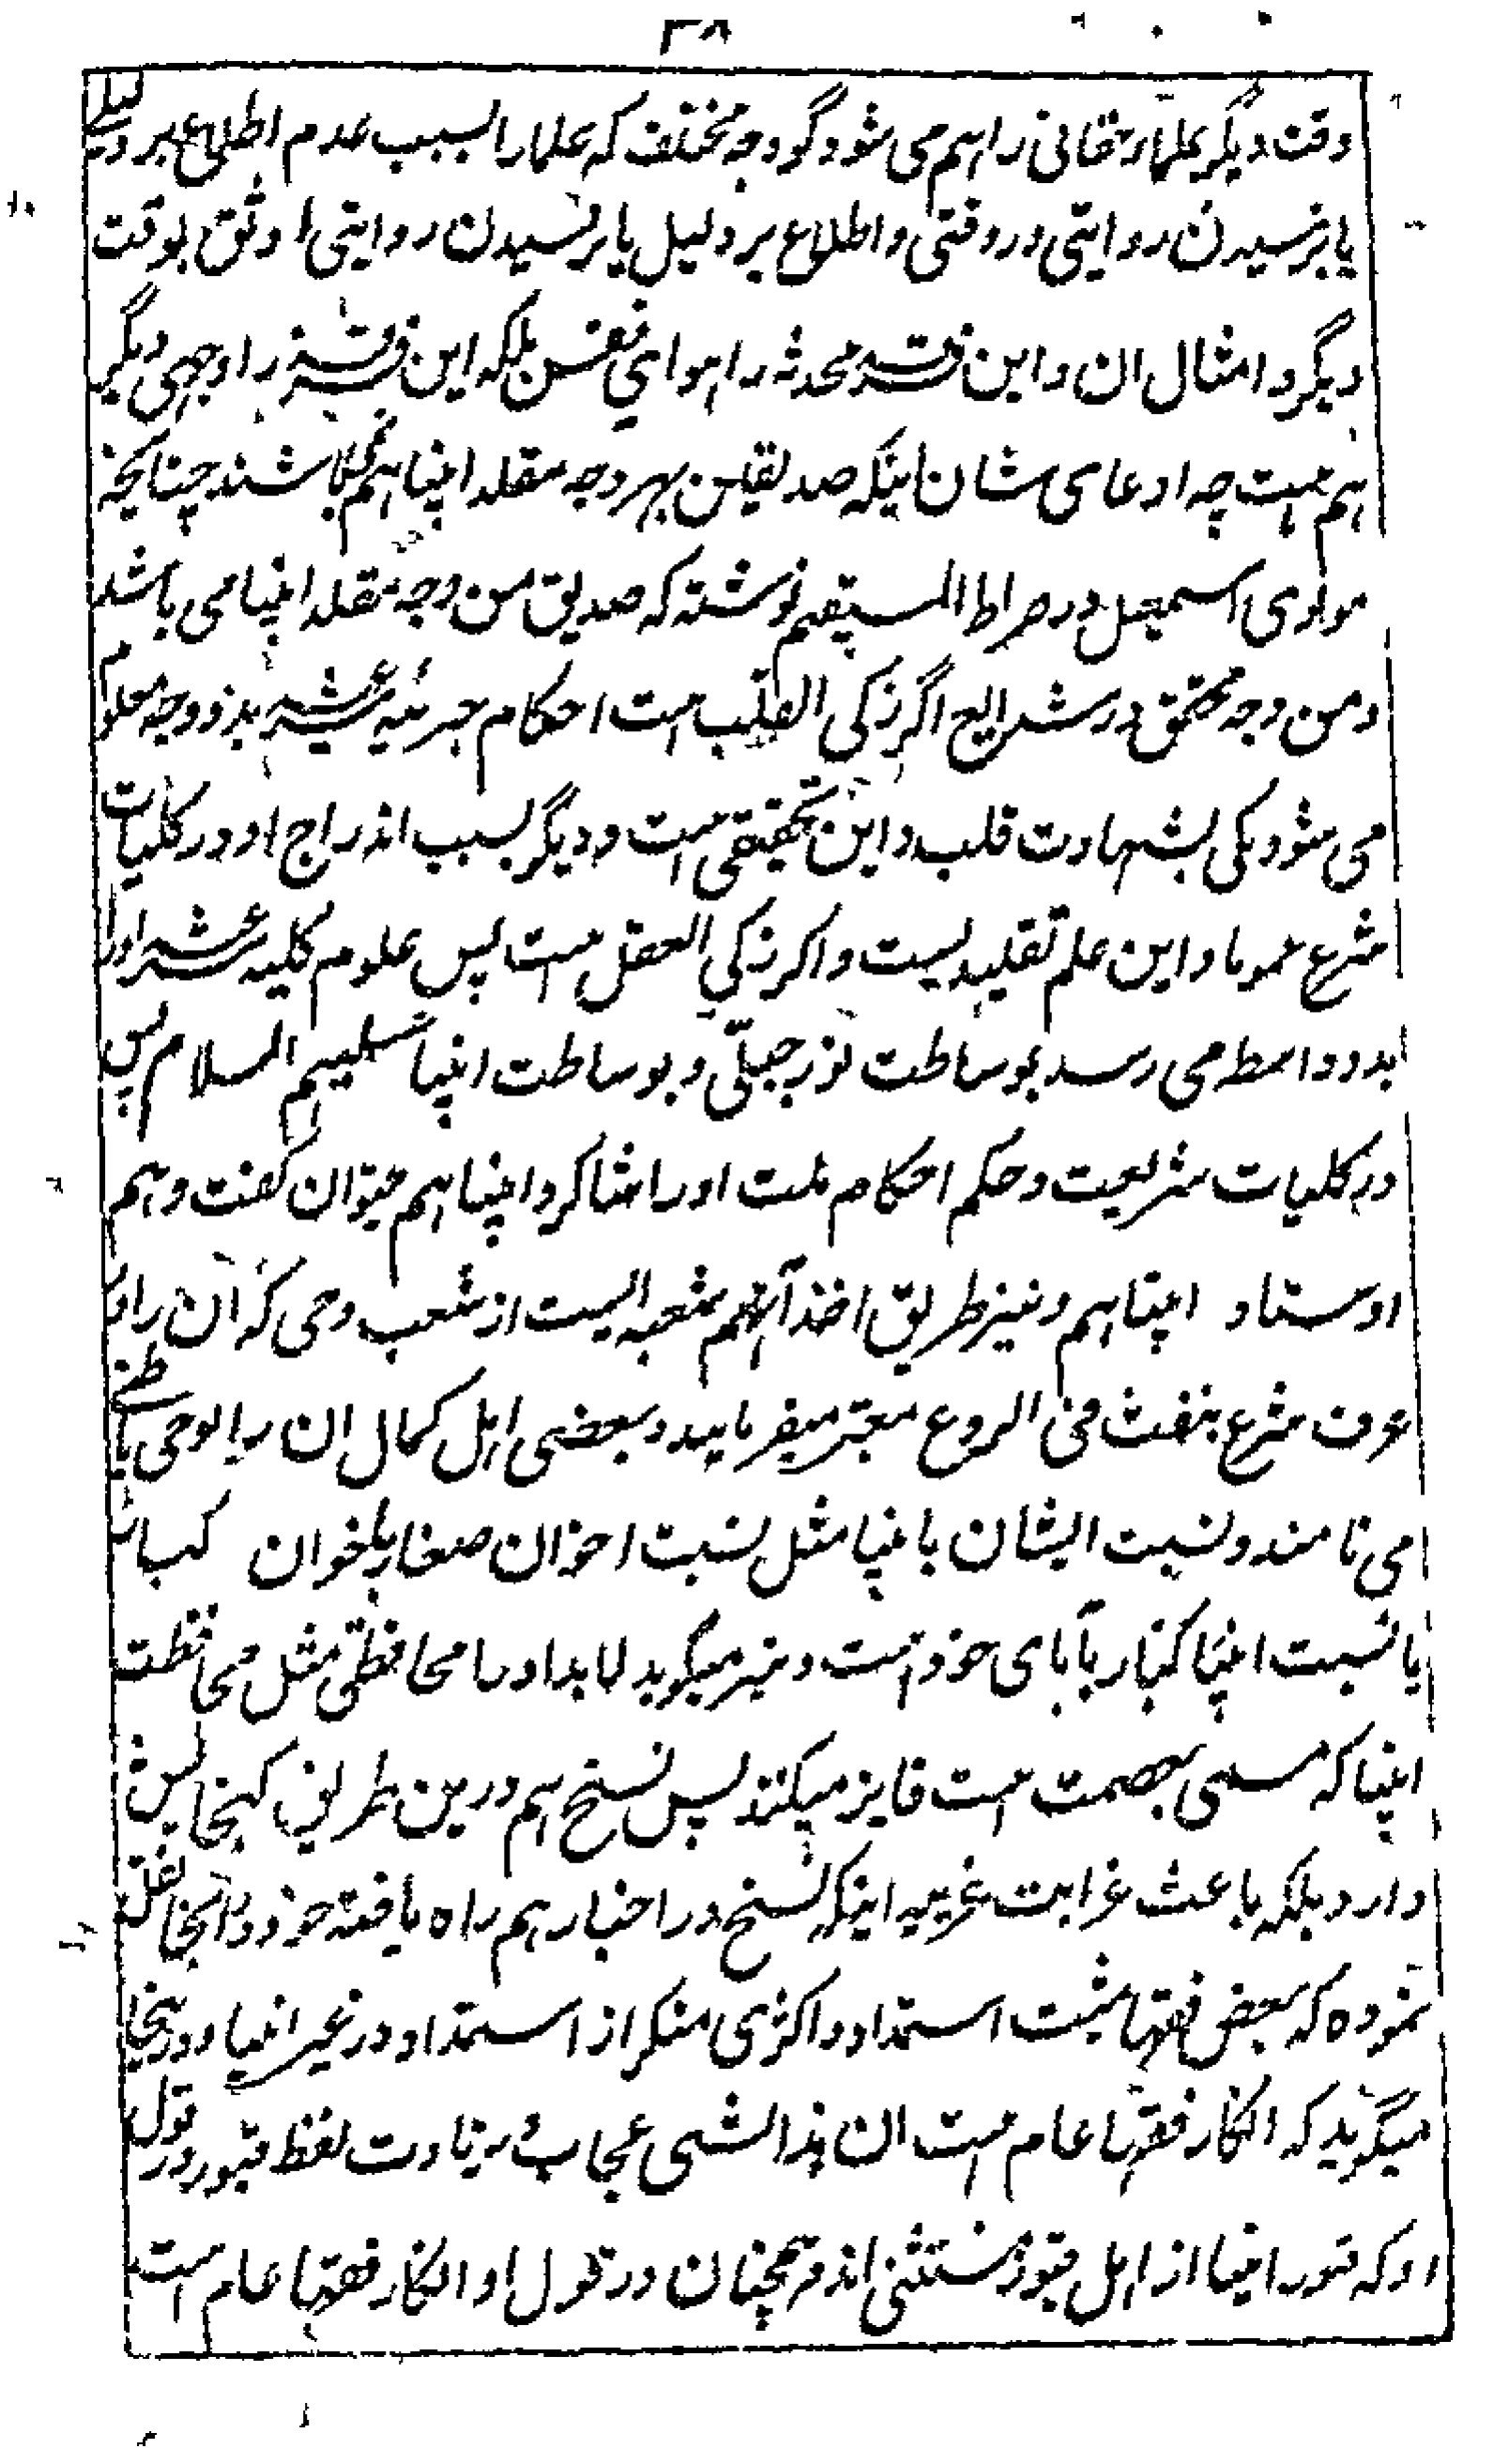 ٣٨
وقت دیگر علمار حقانی را هم می شود گو وجه مختلف که علما را بسبب عدم اطلاع بر دلیل
یا نرسیدن روایتی در وقتی و اطلاع بر دلیل یا رسیدن روایتی اوثق بوقت
دیگر و امثال ان و این فرقه محدثه را هوای نفس بلکه این فرقه را وجهی دیگر
هم هست چه ادعای شان اینکه صدیقین بهر وجه مقلد انبیا هم نمی باشند چنانچه
مولوی اسمعیل در صراط المستقیم نوشته که صدیق من وجه مقلد انبیا می باشد
و من وجه محقق در شرایع اگر زکی القلب است احکام جزئیه شرعیه بدو وجه معلوم
می شود یکی بشهادت قلب و این تحقیقی است و دیگر بسبب اندراج او در کلیات
شرع عموما و این علم تقلیدیست و اکر زکی العقل است پس علوم کلیه شرعیه او را
بدو واسطه می رسد بوساطت نور جبلّی و بوساطت انبیا علیهم السلام پس
در کلیات شریعت و حکم احکام ملت او را شاکرد انبیا هم میتوان کفت و هم
اوستاد انبیا هم و نیز طریق اخذ آنهم شعبه ایست از شعب وحی که آن را در
عرف شرع بنفث فی الروع معبر میفرمایند و بعضی اهل کمال ان را بوحی باطنی
می نامند و نسبت ایشان بانبیا مثل نسبت اخوان صغار باخوان کبار
یا نسبت ابنا کبار بآبای خود است و نیز میگوید لابد او را محافظتی مثل محافظت
انبیا که مسمی بعصمت است فایز میکنند پس نسخ هم درین طریق کنجایش
دارد بلکه باعث غرابت غریبه اینکه نسخ در اخبار هم راه یافته خود در آنجا نقل
نموده که بعض فقها مثبت استمداد و اکثری منکر از استمداد در غیر انبیا و در اینجا
میگوید که انکار فقها عام است ان هذا لشی عجاب زیادت لفظ قبور در قول
او که قبور انبیا از اهل قبور مستثنی اند همچنان در قول او انکار فقها عام است